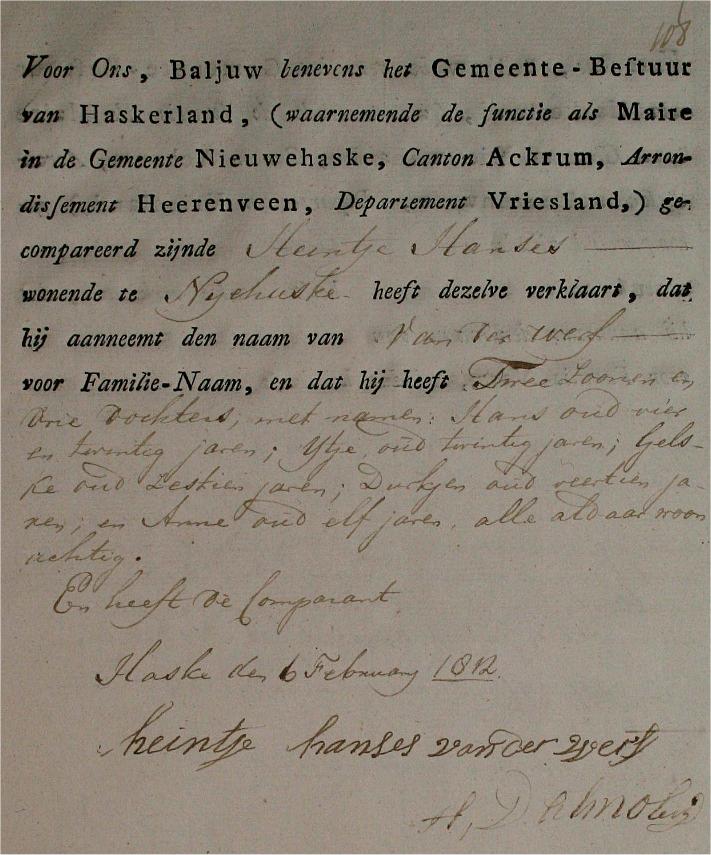 108
Voor Ons, Baljuw benevens het Gemeente-Beſtuur
van Haskerland, (waarnemende de functie als Maire
in de Gemeente Nieuwehaske, Canton Ackrum, Arron-
disſement Heerenveen, Departement Vriesland,) ge-
compareerd zijnde Heintje Hanses
wonende te Nyehaske heeft dezelve verklaart, dat
hij aanneemt den naam van van der werf
voor Familie-Naam, en dat hij heeft Twee Zoonen en
drie dochters, met namen: Hans oud vier
en twintig jaren; Ytje, oud twintig jaren; Gels-
ke oud Zestien jaren; Durkjen oud veertien ja-
ren; en Anne oud elf jaren, alle aldaar woon
achtig.
En heeft de Comparant
Haske den 6 February 1812.
heintje hanses van der werf
H,